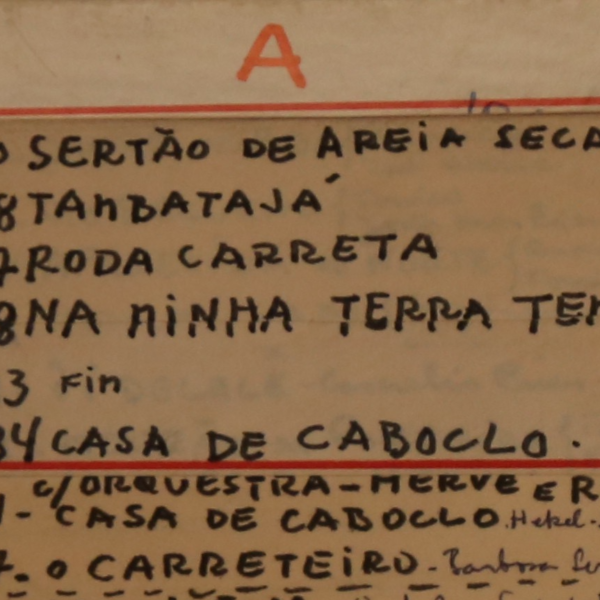 A
O SERTÃO DE AREIA SECA
8 TAMBATAJÁ
7 RODA CARRETA
8 NA MINHA TERRA TEM
3 FIM
34 CASA DE CABOCLO.
C/ORQUESTRA-HERVE E R
1- CASA DE CABOCLO. Hekel-
7. O CARRETEIRO - Barbosa